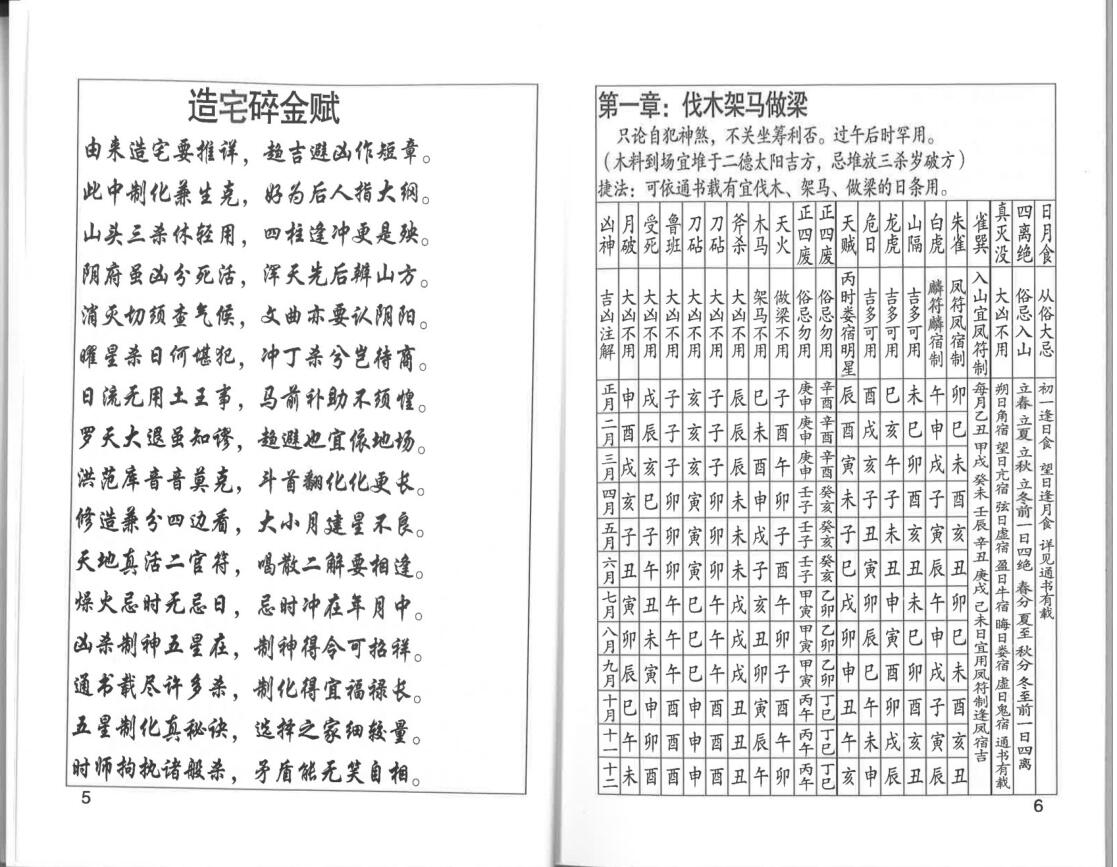 造宅碎金赋
由来造宅要推详，趋吉避凶作短章。
此中制化兼生克，好为后人指大纲。
山头三杀休轻用，四柱逢冲更是殃。
阴府虽凶分死活，浑天先后辨山方。
消灭切须查气候，文曲亦要认阴阳。
曜星杀日何堪犯，冲丁杀兮岂待商。
日流无用土王事，马前补助不须惶。
罗天大退虽知谬，趋避也宜依地场。
洪范库音音莫克，斗首翻化化更长。
修造兼分四边看，大小月建星不良。
天地真活二官符，唱散二解要相逢。
燥火忌时无忌日，忌时冲在年月中。
凶杀制神五星在，制神得令可招祥。
通书载尽许多杀，制化得宜福禄长。
五星制化真秘诀，选择之家细较量。
时师拘执诸般杀，矛盾能无笑自相。
5
第一章：伐木架马做梁
只论自犯神煞，不关坐筹利否。过午后时罕用。
（木料到场宜堆于二德太阳吉方，忌堆放三杀岁破方）
捷法：可依通书载有宜伐木、架马、做梁的日条用。
凶神 月破 受死 鲁班 刀砧 刀砧 斧杀 木马 天火 正四废 正四废 天贼 危日 龙虎 山隔 白虎 朱雀 雀巽 真灭没 四离绝 日月食
吉凶注解 大凶不用 大凶不用 大凶不用 大凶不用 大凶不用 大凶不用 架马不用 做梁不用 俗忌勿用 俗忌勿用 丙时娄宿明星 吉多可用 吉多可用 吉多可用 麟符麟宿制 凤符凤宿制 入山宜凤符制 大凶不用 俗忌入山 从俗大忌
正月 申 戌 子 亥 子 辰 巳 子 庚申 辛酉 辰 酉 巳 未 午 卯
二月 酉 辰 子 亥 子 辰 未 庚申 辛酉 酉 戌 亥 巳 申 巳
三月 戌 亥 子 亥 子 辰 酉 午 庚申 辛酉 寅 亥 午 卯 戌 未
四月 亥 巳 卯 寅 卯 未 申 壬子 癸亥 未 子 子 酉 子 酉
五月 子 子 卯 寅 卯 未 戌 子 壬子 癸亥 子 丑 未 亥 寅 亥
六月 丑 午 卯 寅 卯 未 子 壬子 癸亥 巳 寅 丑 丑 辰 丑
七月 寅 丑 午 巳 午 戌 亥 午 甲寅 乙卯 戌 卯 申 未 午 卯
八月 卯 未 午 巳 午 戌 丑 甲寅 乙卯 卯 辰 寅 巳 申 巳
九月 辰 寅 午 巳 午 戌 卯 子 甲寅 乙卯 申 巳 酉 卯 戌 未
十月 巳 申 酉 申 酉 丑 寅 酉 丙午 丁巳 丑 午 卯 酉 子 酉
十一 午 卯 酉 申 酉 丑 辰 午 丙午 丁巳 午 未 戌 亥 寅 亥
十二 未 酉 酉 申 酉 丑 午 卯 丙午 丁巳 亥 申 辰 丑 辰 丑
每月乙丑 甲戌 癸未 壬辰 辛丑 庚戌 己未日宜用凤符制逢凤宿吉
朔日角宿 望日亢宿 弦日虚宿 盈日牛宿 晦日娄宿 虚日鬼宿 通书有载
立春 立夏 立秋 立冬前一日四绝 春分 夏至 秋分 冬至前一日四离
初一逢日食 望日逢月食 详见通书有载
6